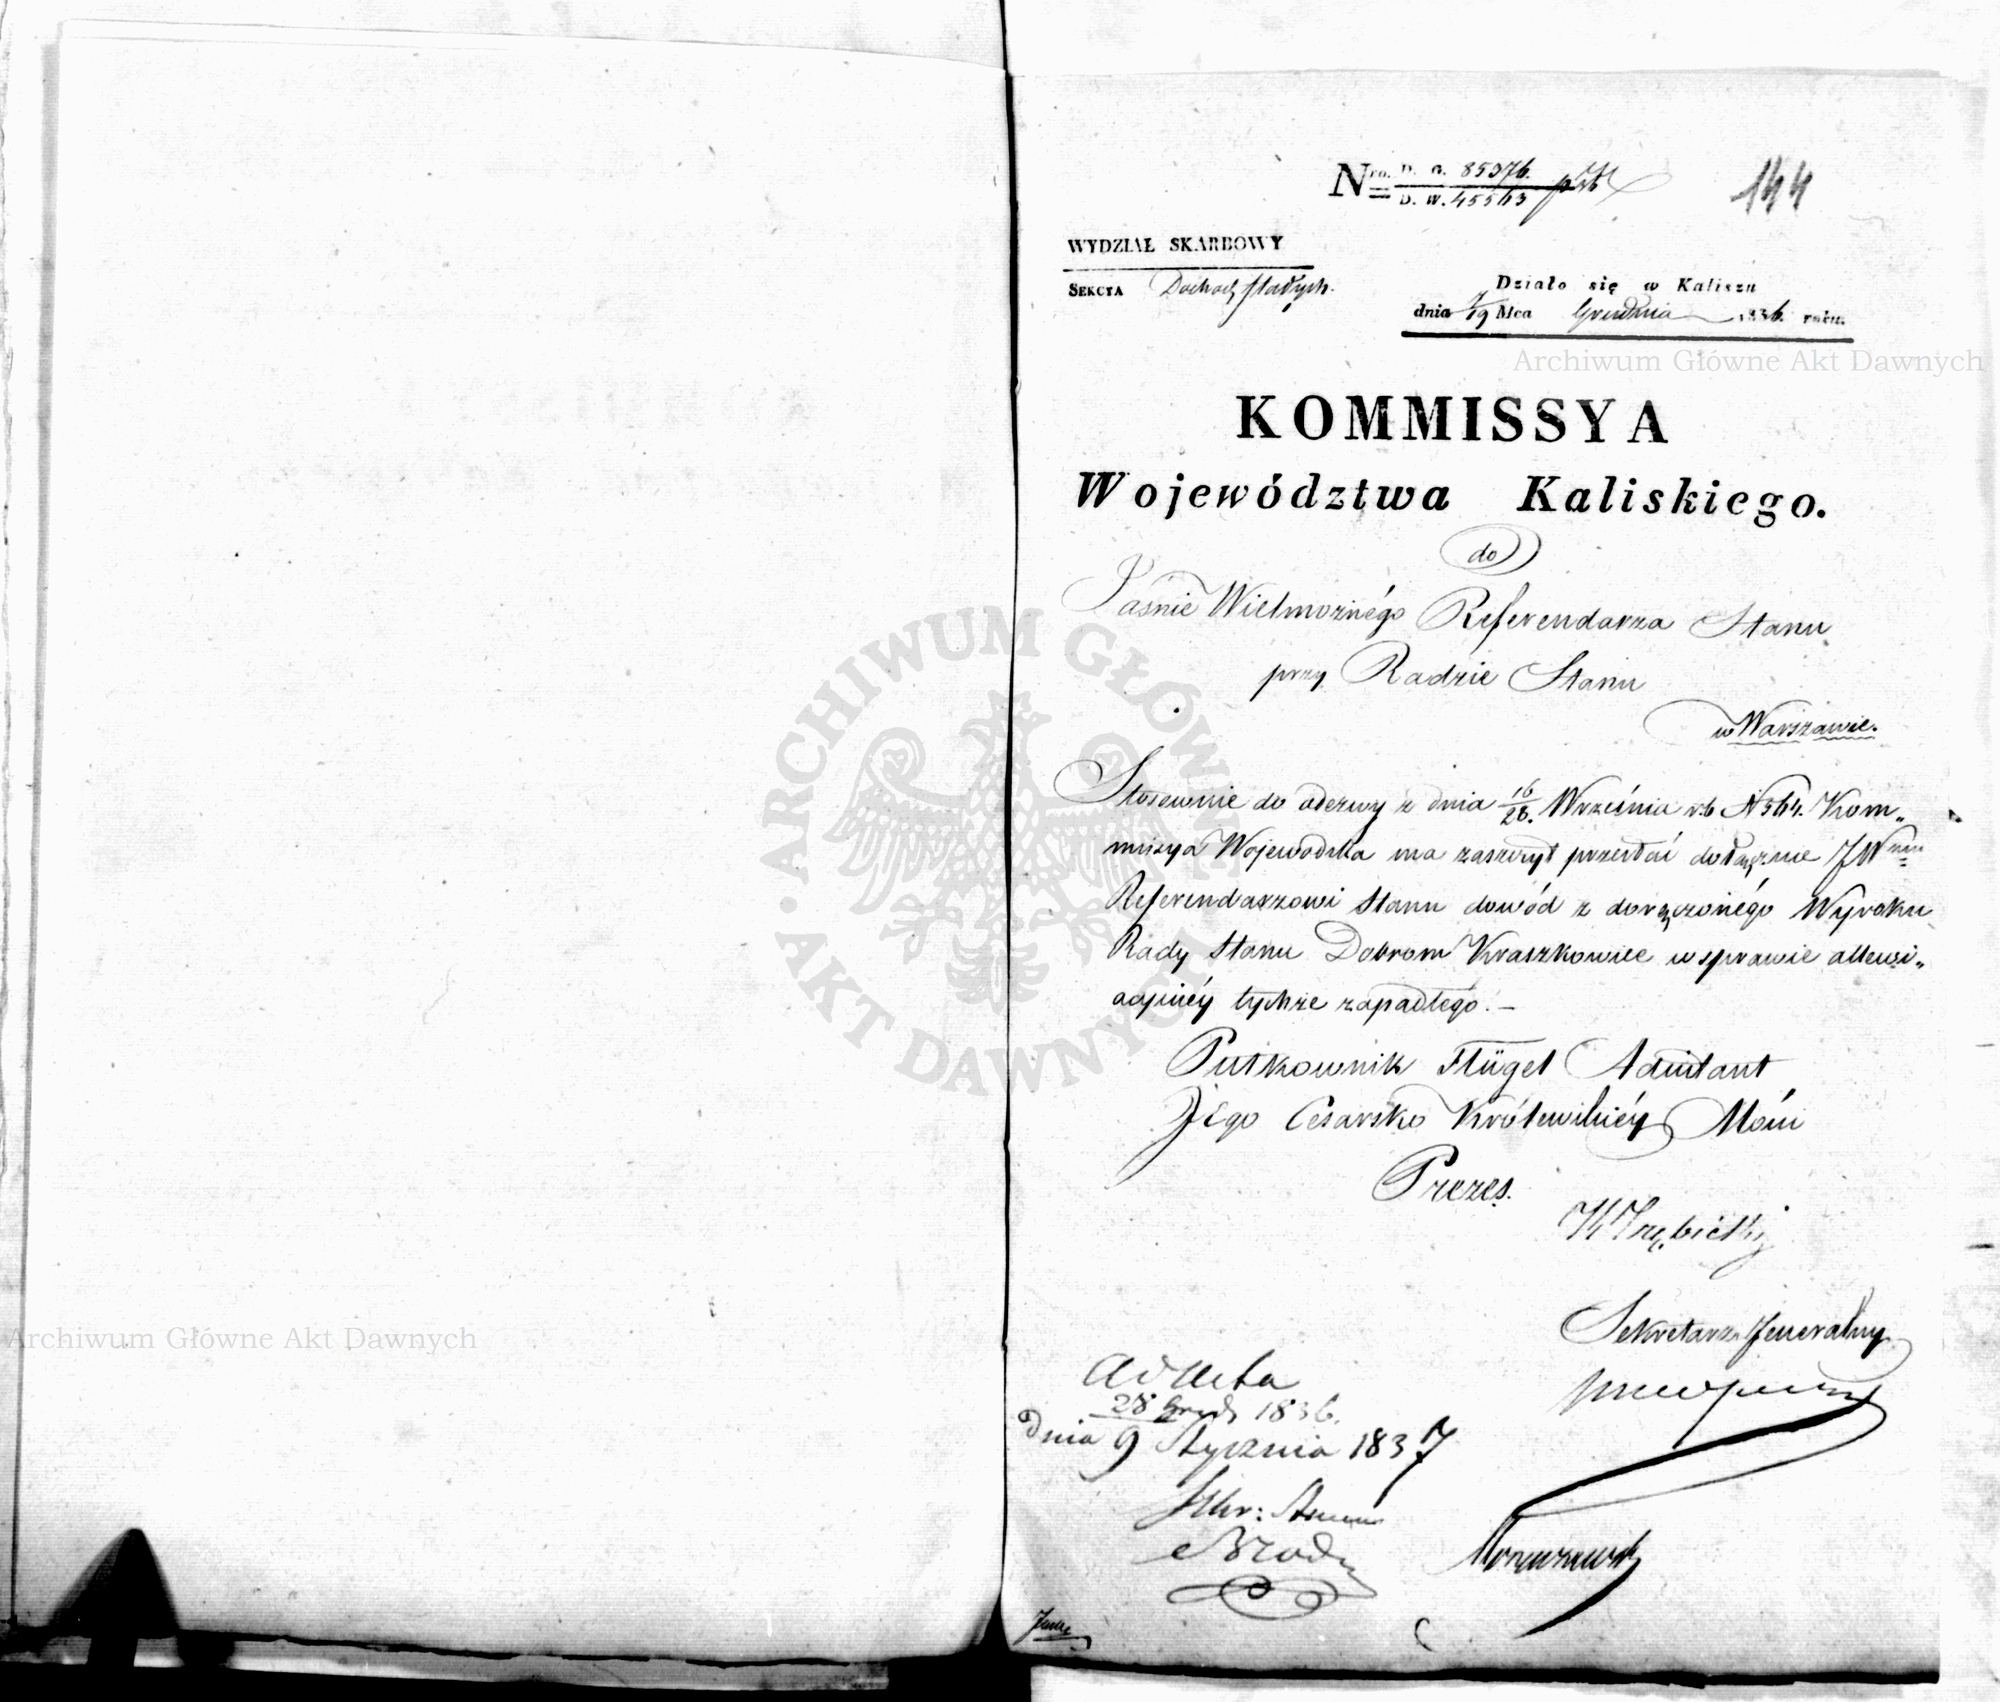 Nro. D. G. 85976.
D. W. 45563
144
WYDZIAŁ SKARBOWY
SEKCYA Dochod. stałych.
Działo się w Kaliszu
dnia 7/19 Mca Grudnia 1836. roku.
Archiwum Główne Akt Dawnych
KOMMISSYA
Województwa Kaliskiego.
do
Jaśnie Wielmożnégo Referendarza Stanu
przy Radzie Stanu
w Warszawie.
Stosownie do odezwy z dnia 16/28. Września r.b N 564. Kom„
missya Wojewodzka ma zaszczyt przesłać dołącznie JWmu
Referendarzowi Stanu dowód z doręczonégo Wyroku
Rady Stanu Dobrom Kraszkowice w sprawie allewi„
acyinéy tychże zapadłego. –
Pułkownik Flügel Adiutant
Jego Cesarsko Królewskiéy Mości
Prezes.
Sekretarz Jeneralny
Ad Acta
28 Grud 1836.
dnia 9 Stycznia 1837
Stanu
Brodz
ARCHIWUM GŁÓWNE AKT DAWNYCH
Archiwum Główne Akt Dawnych